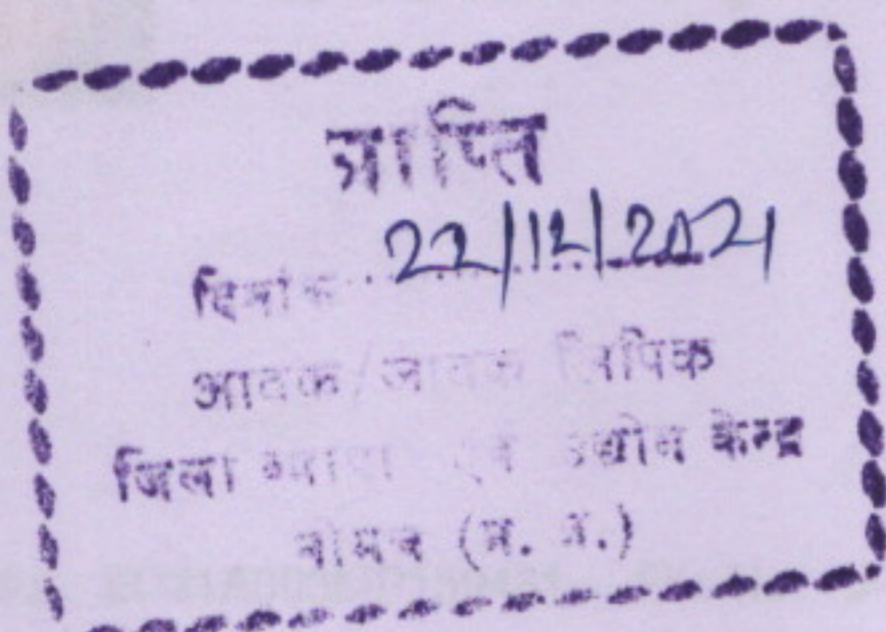 प्राप्ति
दिनांक 22/12/2021
आवक/जावक लिपिक
जिला व्यापार एवं उद्योग केन्द्र
नीमच (म. प्र.)